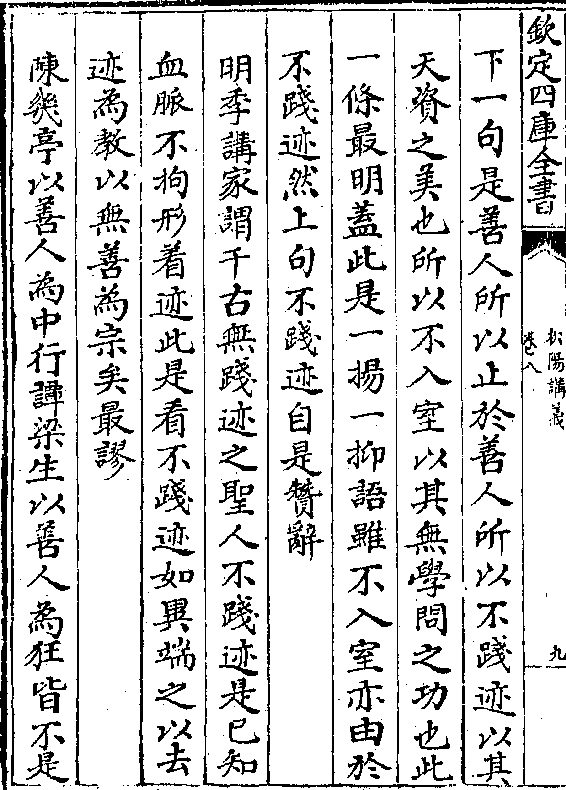 欽定四庫全書
松陽講義
卷八
九
下一句是善人所以止於善人所以不踐迹以其
天資之美也所以不入室以其無學問之功也此
一條最明蓋此是一揚一抑語雖不入室亦由於
不踐迹然上句不踐迹自是贊辭
明季講家謂千古無踐迹之聖人不踐迹是已知
血脈不拘形着迹此是看不踐迹如異端之以去
迹為教以無善為宗矣最謬
陳幾亭以善人為中行譚梁生以善人為狂皆不是